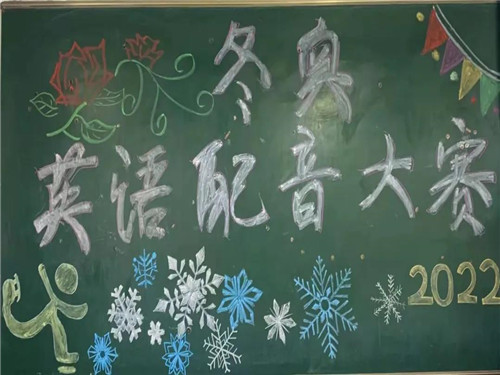 冬奥
英语配音大赛
2022